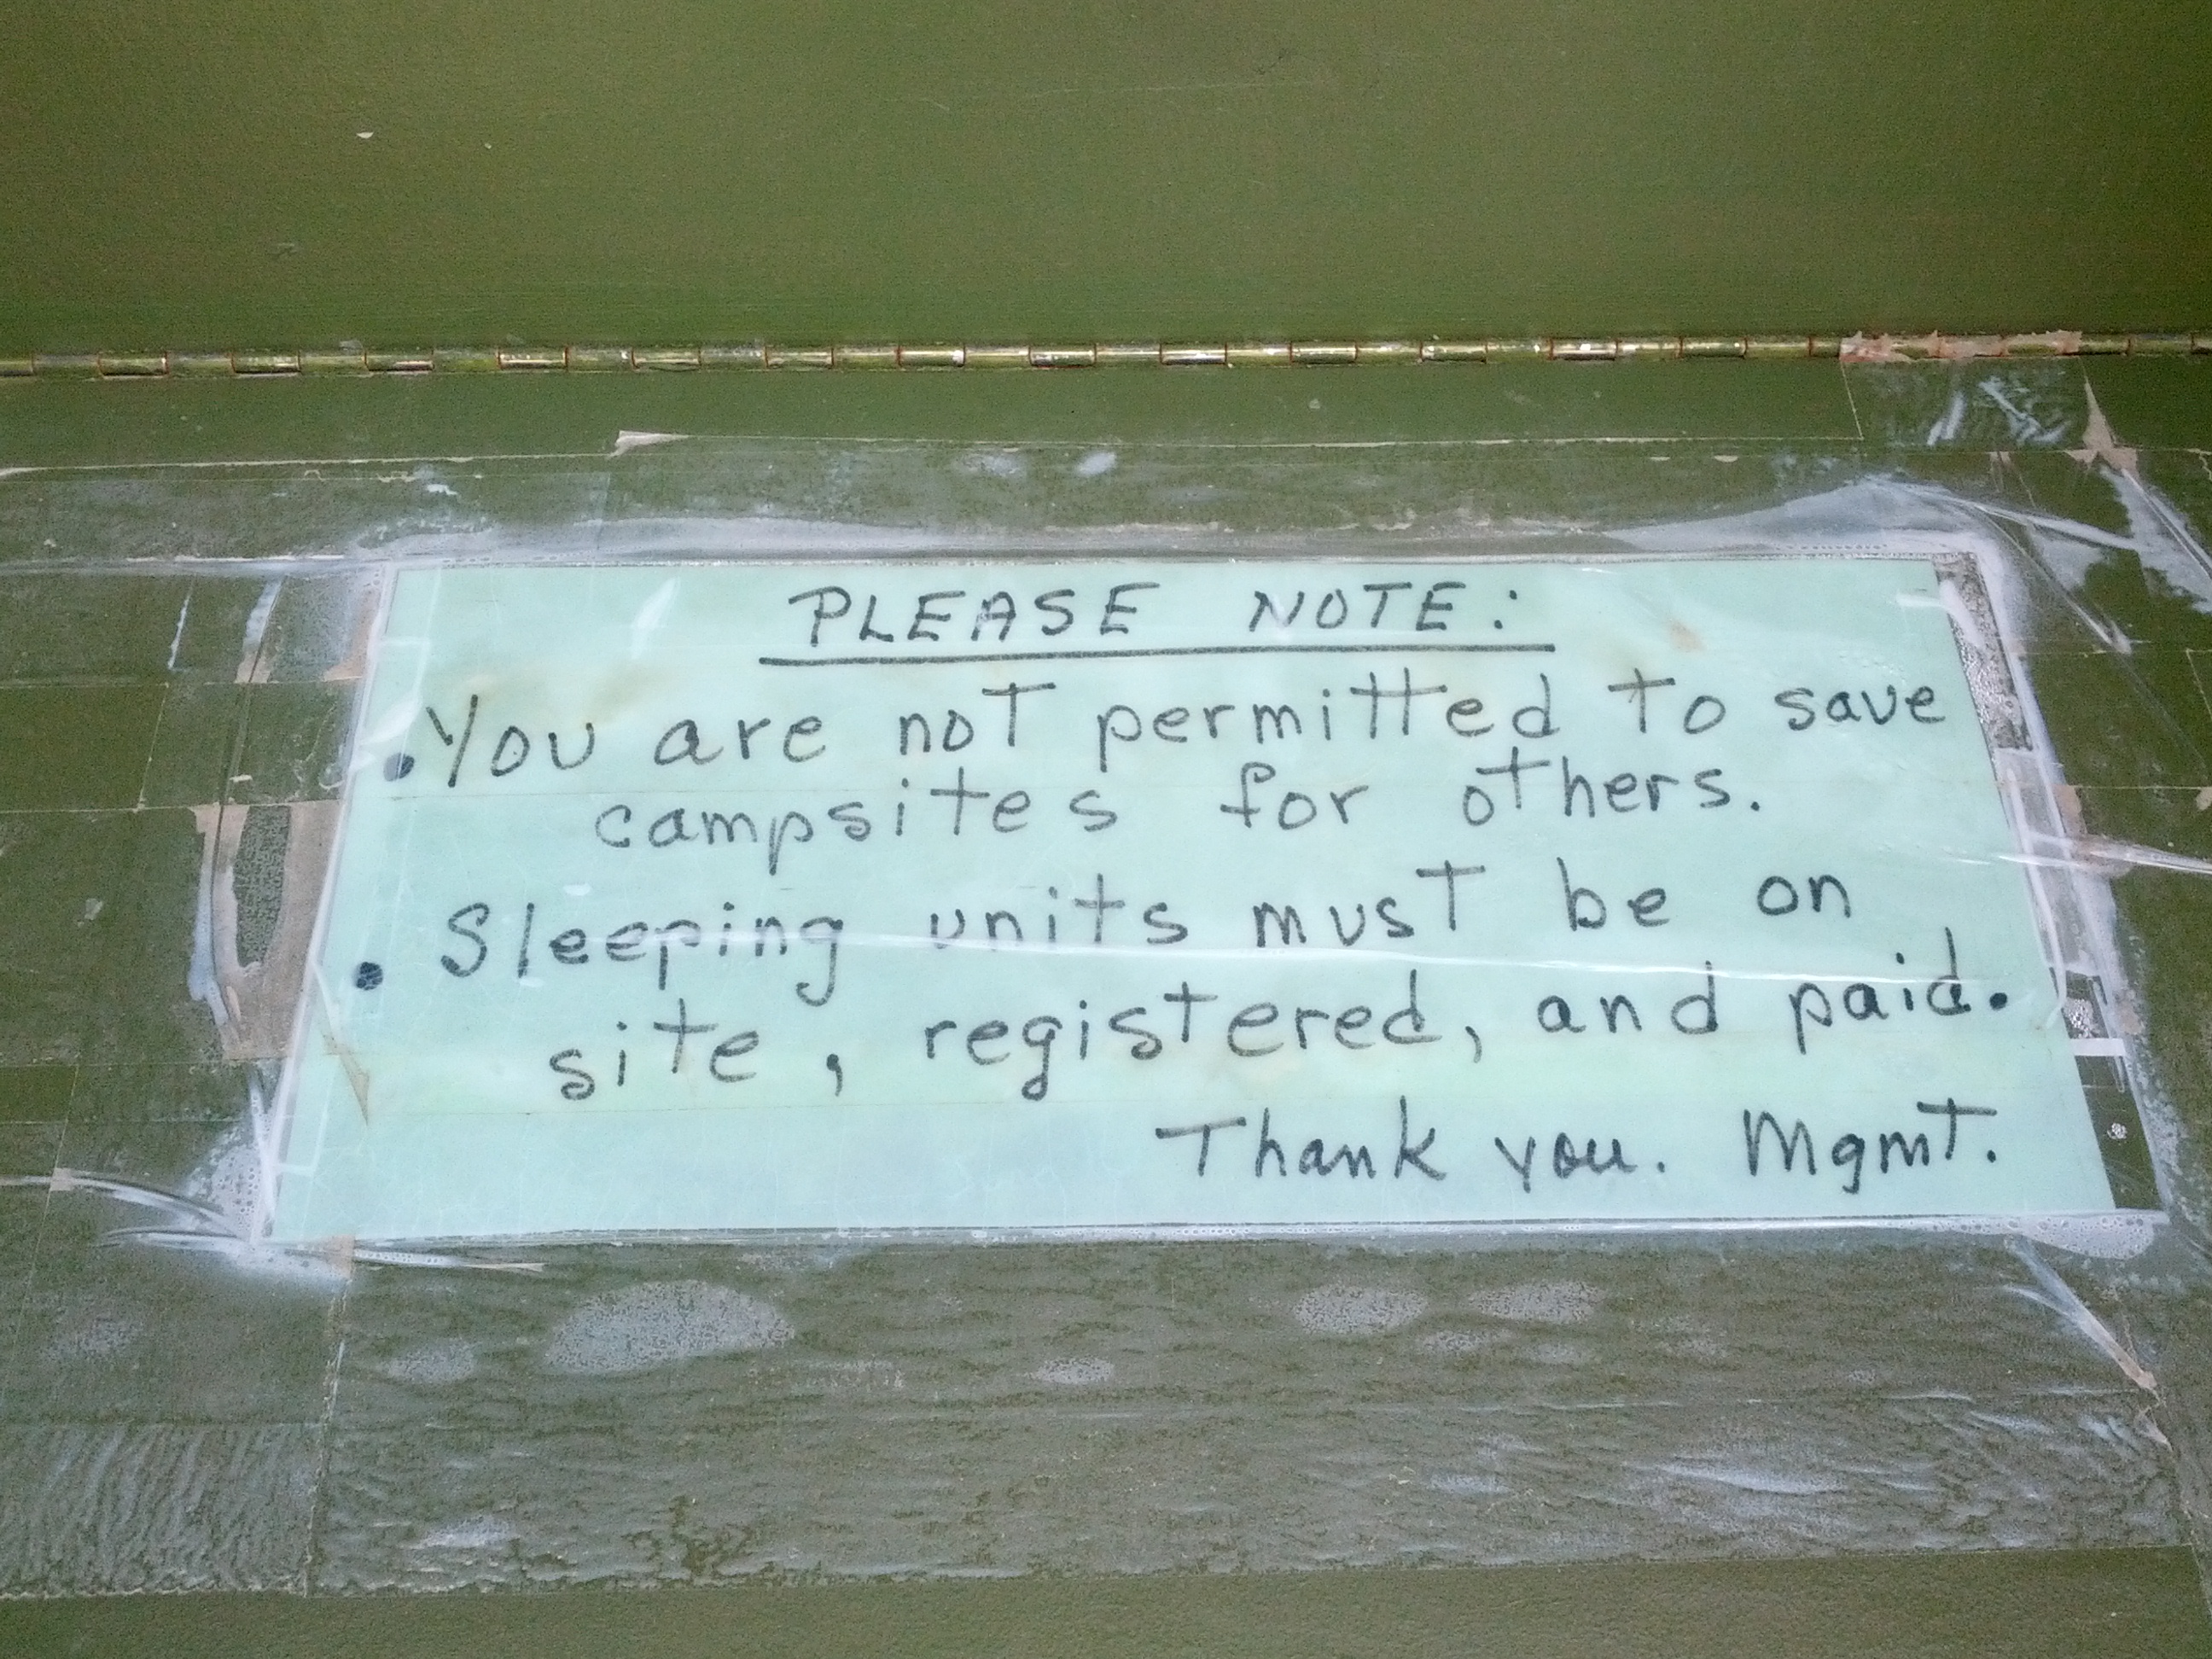 PLEASE NOTE:
• You are not permitted to save
campsites for others.
• Sleeping units must be on
site, registered, and paid.
Thank you. Mgmt.